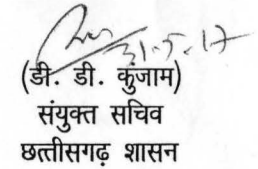 31-5-17
(डी. डी. कुंजाम)
संयुक्त सचिव
छत्तीसगढ़ शासन